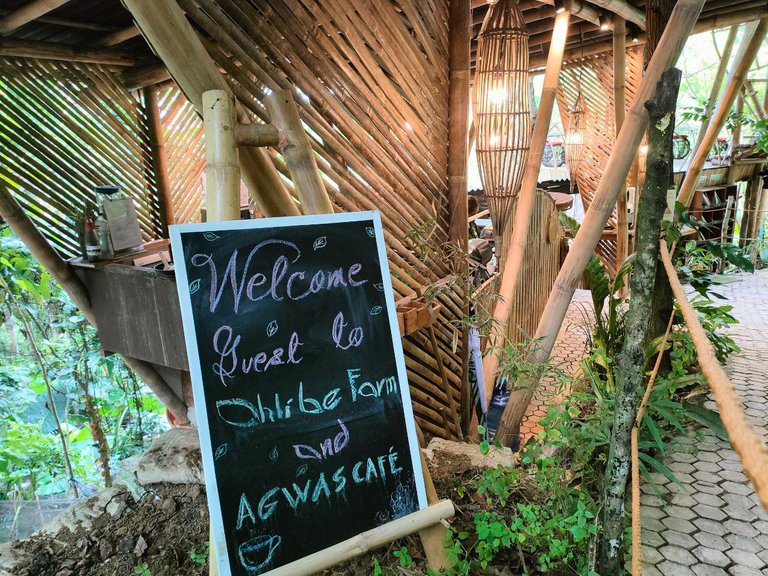 Welcome
Guest to
Ohlibe Farm
and
AGWAS CAFÉ